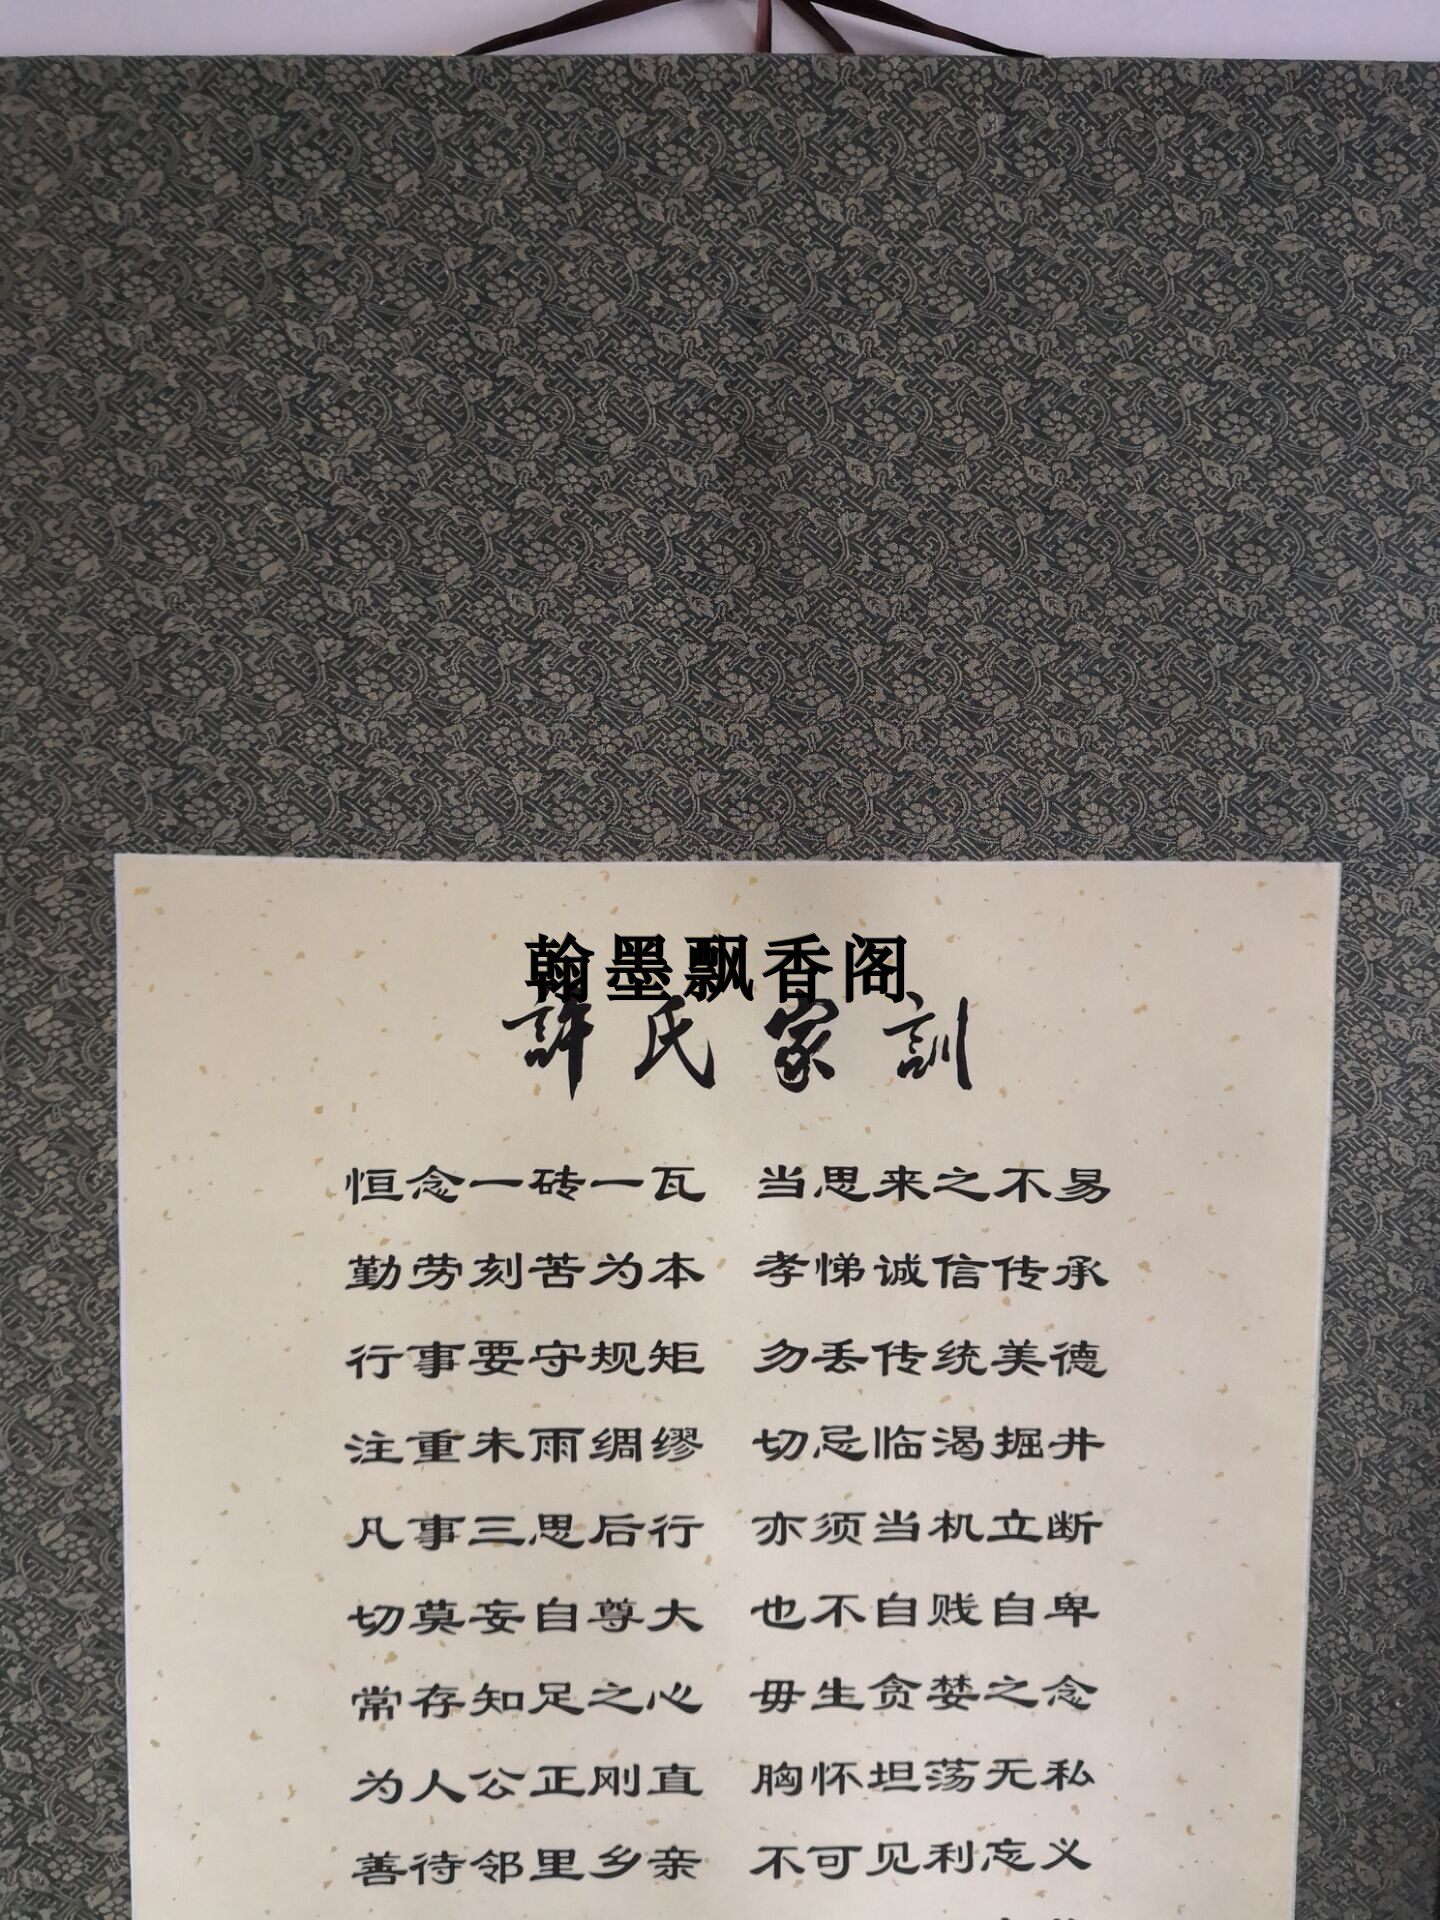 翰墨飘香阁
許氏家訓
恒念一砖一瓦 当思来之不易
勤劳刻苦为本 孝悌诚信传承
行事要守规矩 勿丢传统美德
注重未雨绸缪 切忌临渴掘井
凡事三思后行 亦须当机立断
切莫妄自尊大 也不自贱自卑
常存知足之心 毋生贪婪之念
为人公正刚直 胸怀坦荡无私
善待邻里乡亲 不可见利忘义